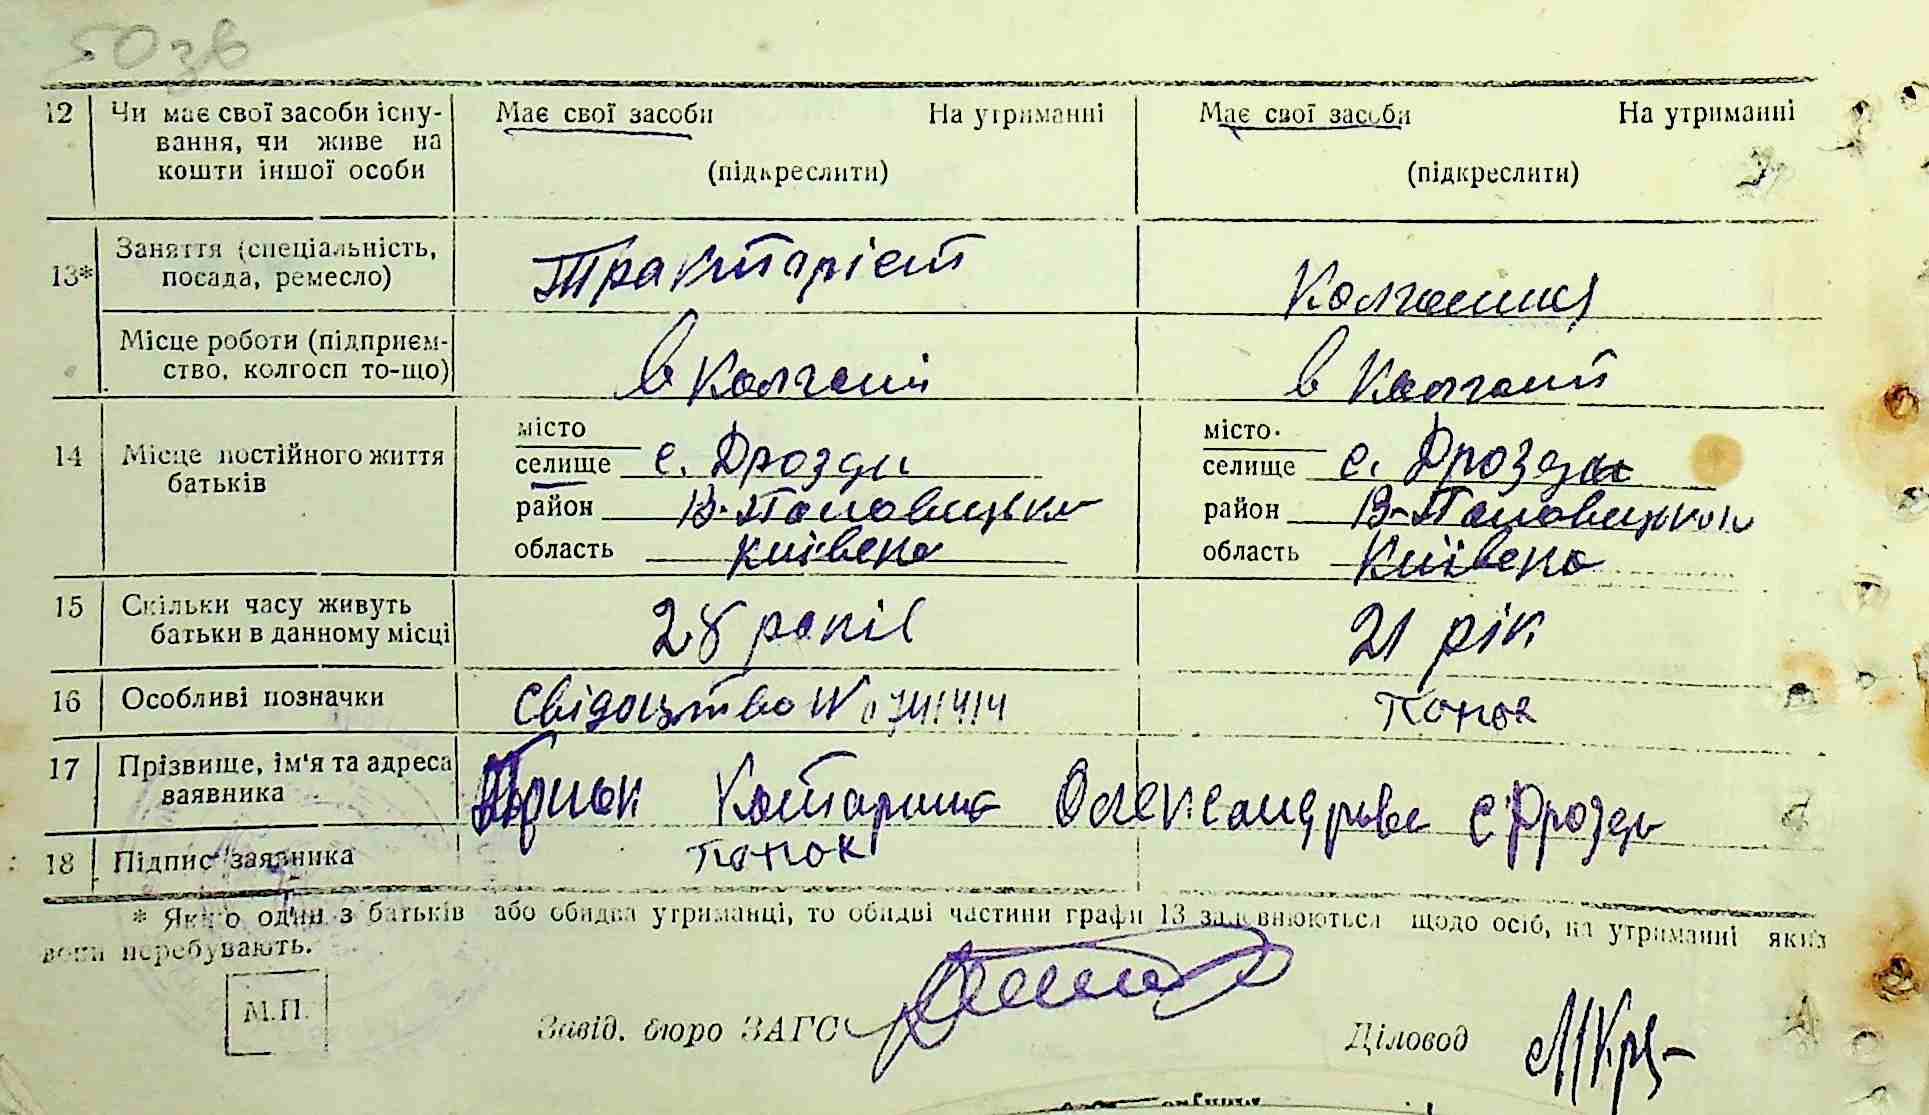 50 зв
12 Чи має свої засоби існу- Має свої засоби На утриманні Має свої засоби На утриманні
вання, чи живе на
кошти іншої особи (підкреслити) (підкреслити)
13* Заняття (спеціальність, Тракторіст Колгосниця
посада, ремесло)
Місце роботи (підприєм- в колгоспі в колгоспі
ство, колгосп то-що)
місто місто
14 Місце постійного життя селище с. Дрозди селище с. Дрозди
батьків район В-Половецьк район В-Половецьк
область Київськ область Київськ
15 Скільки часу живуть 28 років 21 рік
батьки в данному місці
16 Особливі позначки Свідоцтво № 0741414
17 Прізвище, ім'я та адреса Катарина Олександрівна с Дрозди
заявника
18 Підпис заявника
* Якщо один з батьків або обидва утриманці, то обидві частини графи 13 заповнюються щодо осіб, на утриманні яких
вони перебувають.
М.П.
Завід. бюро ЗАГС Діловод